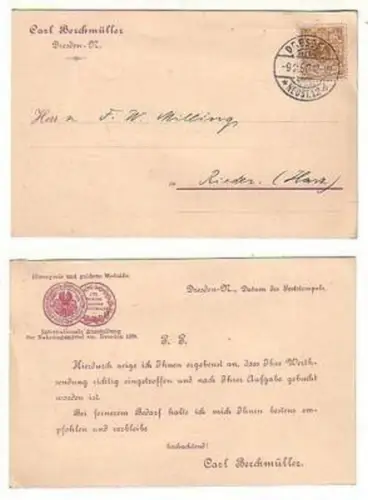 Carl Berchmüller
Dresden-N.
DRESDEN
NEUST.
Herrn F. W. Milling,
in Rieder. (Harz)
Ehrenpreis und goldene Medaille.
Internationale Ausstellung
für Nahrungsmittel
Dresden-N., Datum des Poststempels.
P. P.
Hierdurch zeige ich Ihnen ergebenst an, dass Ihre Werth-
sendung richtig eingetroffen und nach Ihrer Aufgabe gebucht
worden ist.
Bei fernerem Bedarf halte ich mich Ihnen bestens em-
pfohlen und verbleibe
hochachtend!
Carl Berchmüller.